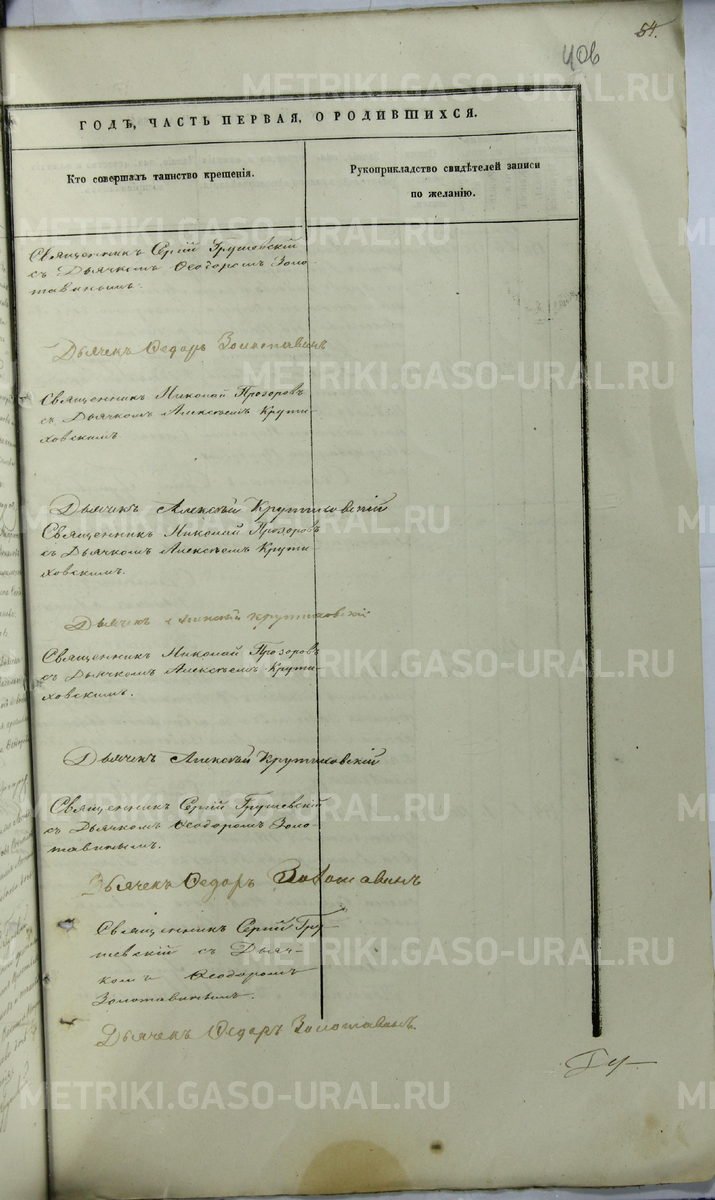 54.
406
ГОДЪ, ЧАСТЬ ПЕРВАЯ, О РОДИВШИХСЯ.
Кто совершалъ таинство крещенія.
Рукоприкладство свидѣтелей записи
по желанію.
Священникъ Сергій Грушевскій
съ Дьячкомъ Ѳеодоромъ Золо-
тавинымъ.
Дьячекъ Ѳедоръ Золотавинъ
Священникъ Николай Прозоровъ
съ Дьячкомъ Алексѣемъ Крути-
ховскимъ
Дьячекъ Алексѣй Крутиховскій
Священникъ Николай Прозоровъ
съ Дьячкомъ Алексѣемъ Крути
ховскимъ.
Дьячекъ Алексѣй Крутиховскій
Священникъ Николай Прозоровъ
съ Дьячкомъ Алексѣемъ Крути-
ховскимъ.
Дьячекъ Алексѣй Крутиховскій
Священникъ Сергій Грушевскій
съ Дьячкомъ Ѳеодоромъ Золо-
тавинымъ.
Дьячекъ Ѳедоръ Золотавинъ
Священникъ Сергій Гру-
шевскій съ Дьяч-
комъ Ѳеодоромъ
Золотавинымъ.
Дьячекъ Ѳедоръ Золотавинъ.
METRIKI.GASO-URAL.RU